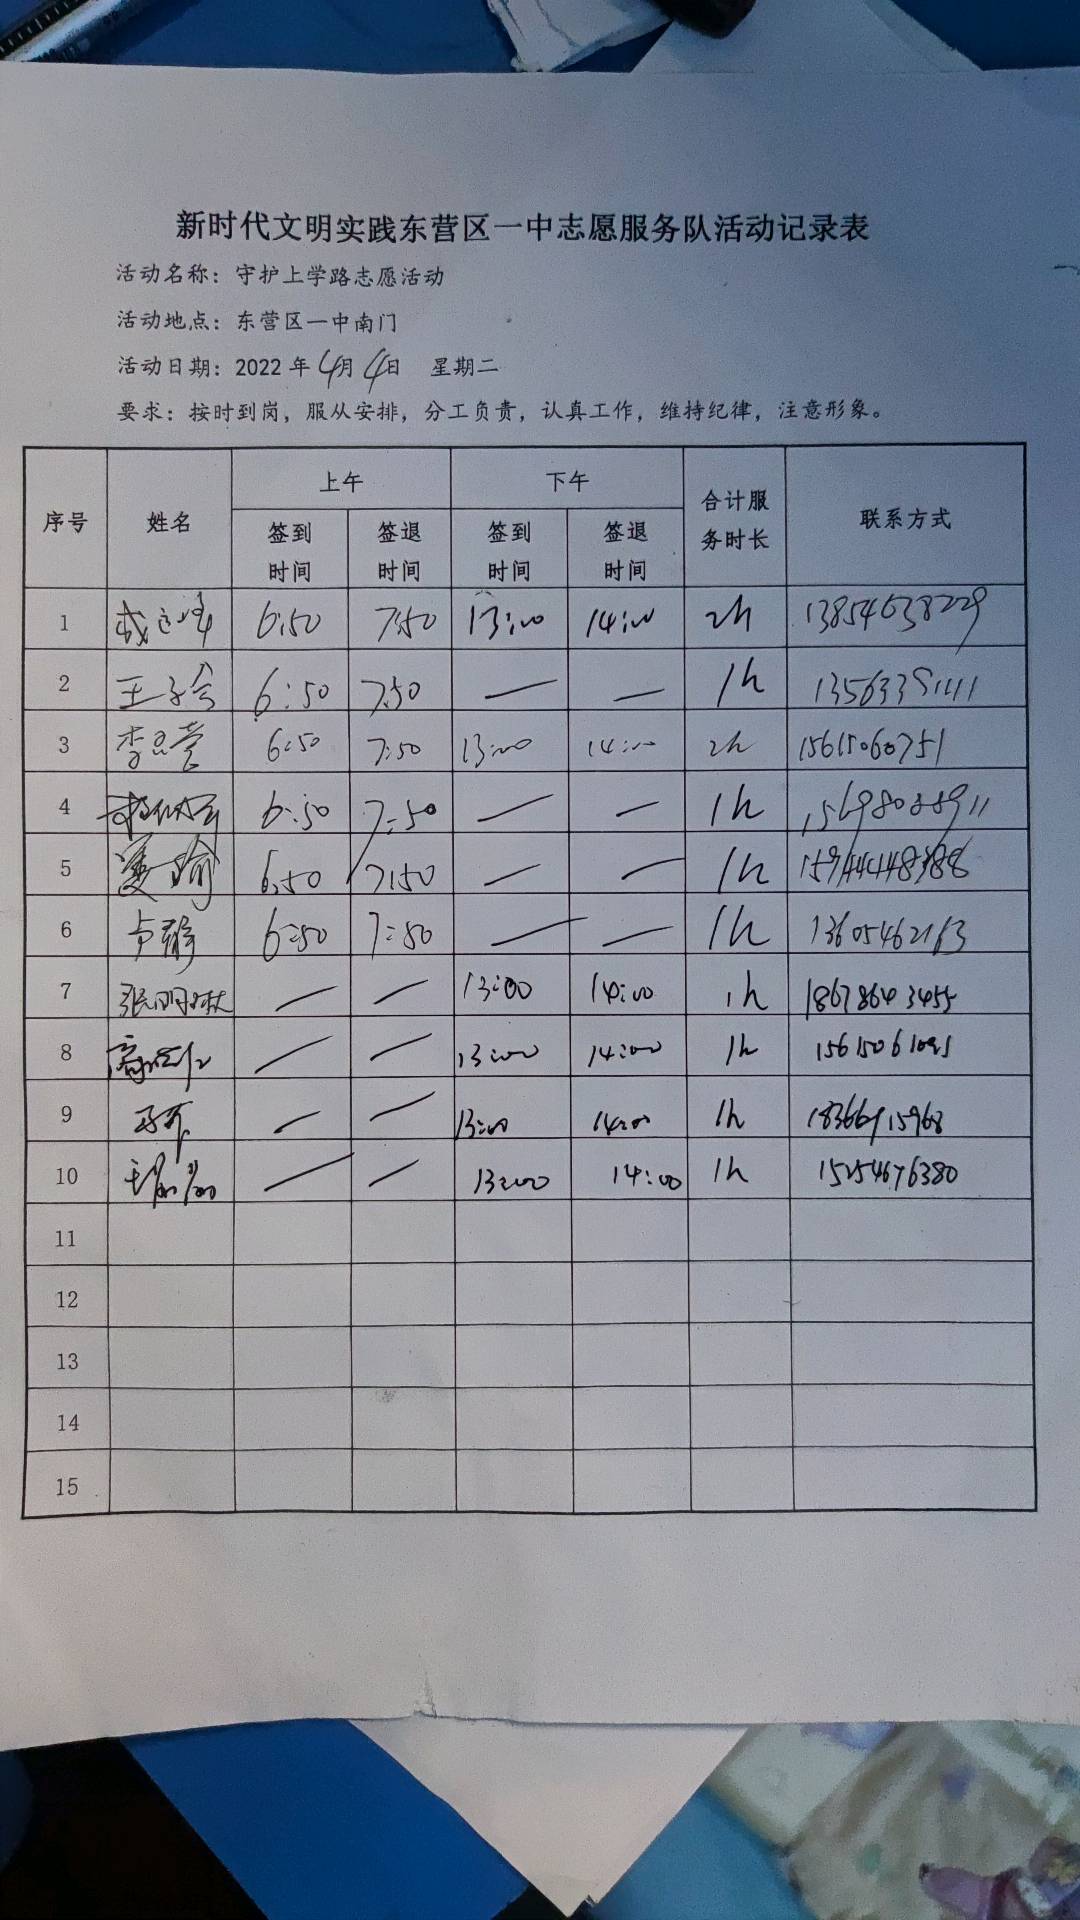 新时代文明实践东营区一中志愿服务队活动记录表
活动名称：守护上学路志愿活动
活动地点：东营区一中南门
活动日期：2022 年 4月 4日 星期二
要求：按时到岗，服从安排，分工负责，认真工作，维持纪律，注意形象。
序号 姓名 上午 下午 合计服务时长 联系方式
签到时间 签退时间 签到时间 签退时间
1 6:50 7:50 13:00 14:00 2h 13854638229
2 王子会 6:50 7:50 — — 1h
3 6:50 7:50 13:00 14:00 2h 15615060751
4 6:50 7:50 — — 1h
5 6:50 7:50 — — 1h
6 卢静 6:50 7:50 — — 1h 13605462163
7 张明林 — — 13:00 14:00 1h 18678643455
8 — — 13:00 14:00 1h
9 — — 13:00 14:00 1h
10 — — 13:00 14:00 1h 15254676380
11
12
13
14
15